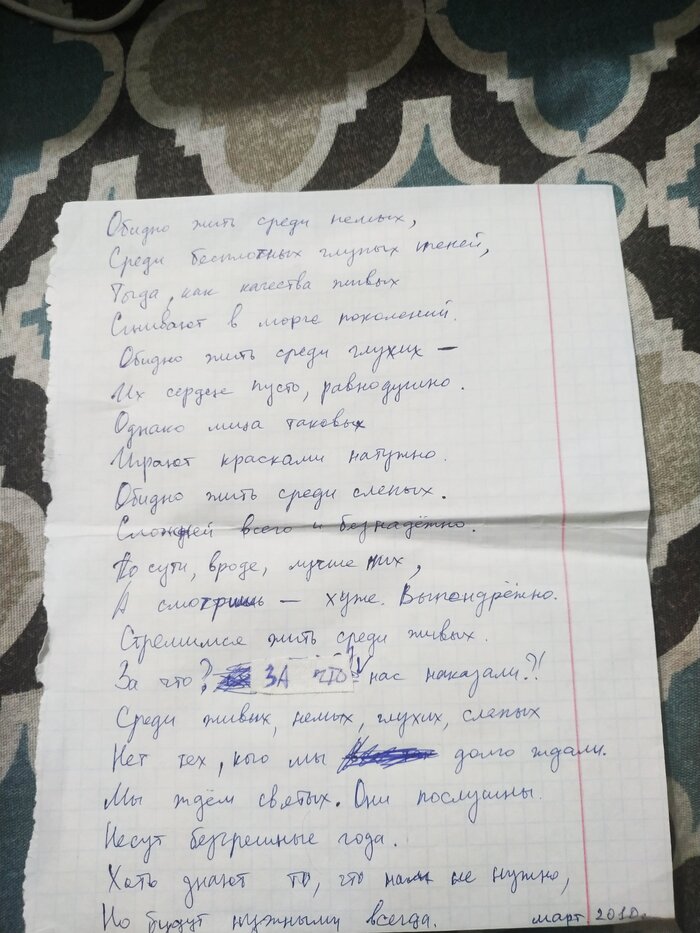 Обидно жить среди немых,
Среди бесплотных глупых теней,
Тогда, как качества живых
Сгнивают в морге поколений.
Обидно жить среди глухих –
Их сердце пусто, равнодушно.
Однако лица таковых
Играют красками натужно.
Обидно жить среди слепых.
Сложней всего и безнадёжно.
По сути, вроде, лучше них,
А смотришь – хуже. Выпендрёжно.
Стремимся жить среди живых.
За что? ЗА ЧТО нас наказали?!
Среди живых, немых, глухих, слепых
Нет тех, кого мы долго ждали.
Мы ждём святых. Они послушны.
Несут безгрешные года.
Хоть знают то, что нам не нужно,
Но будут нужными всегда. март 2010.